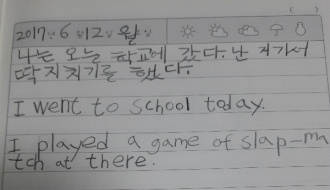 2017년 6월 12일 월요일
나는 오늘 학교에 갔다. 난 거기서
딱지치기를 했다.
I went to school today.
I played a game of slap-ma
tch at there.